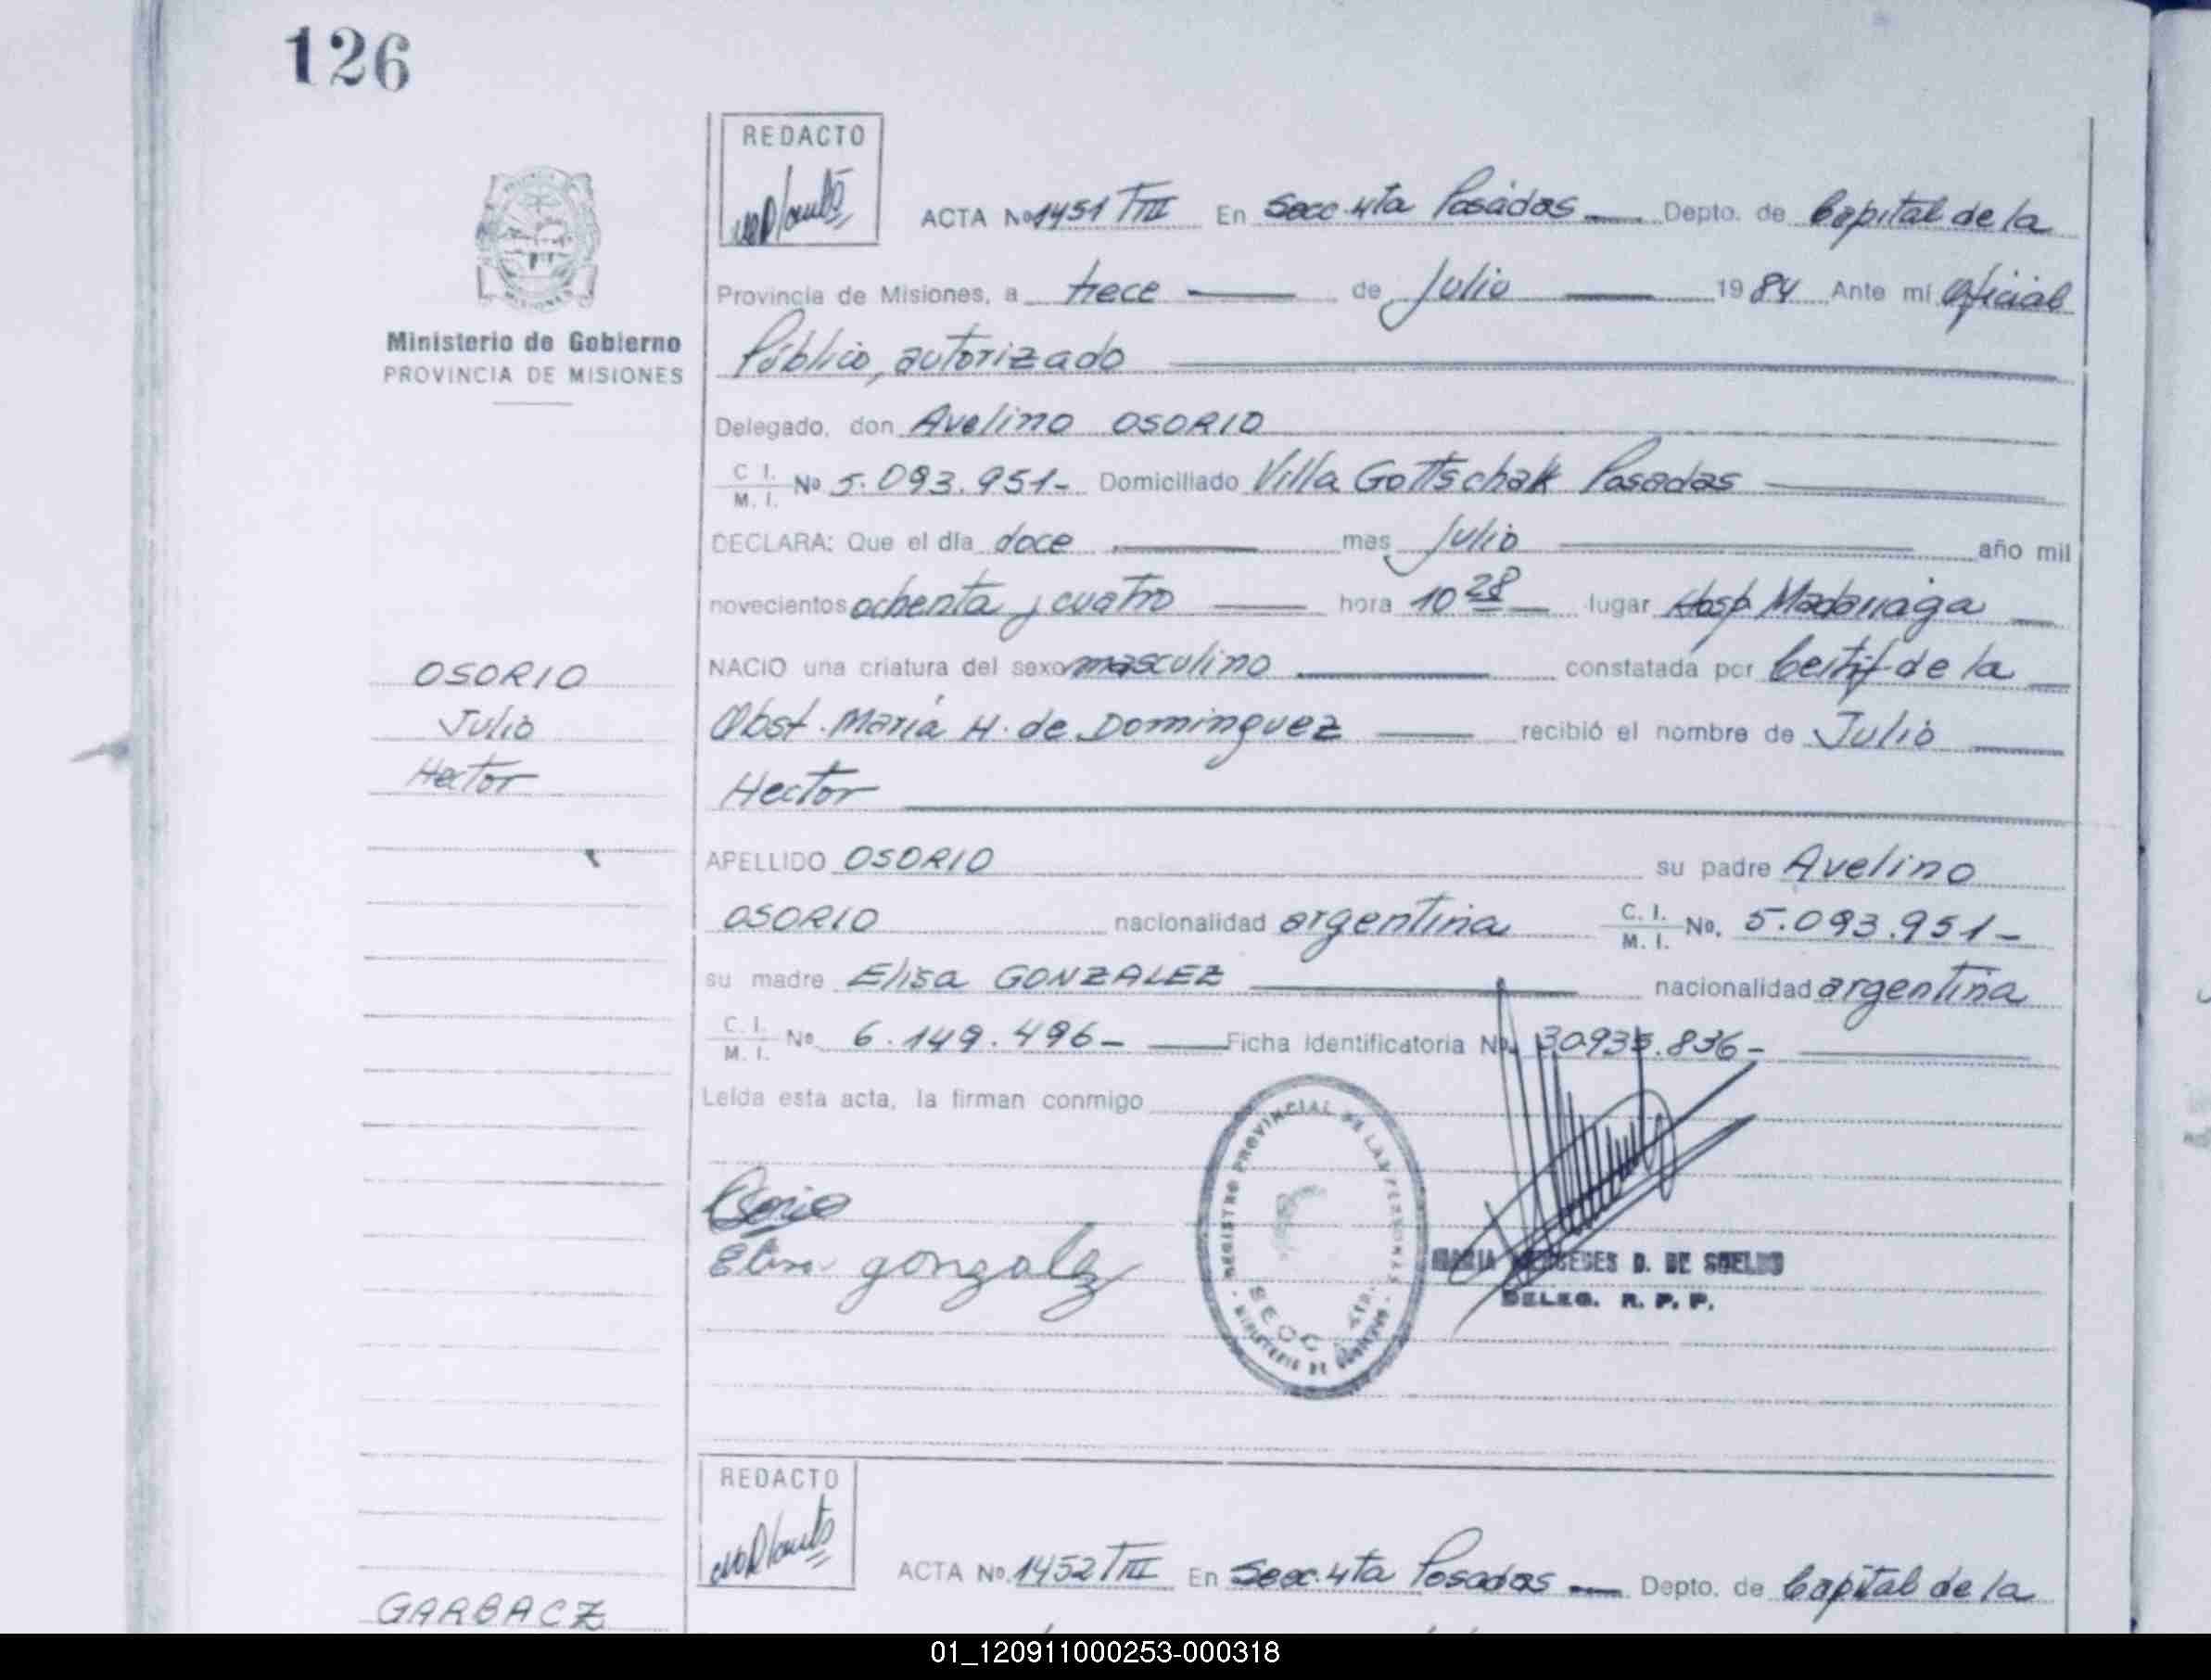 126
REDACTO
ACTA Nº 1451 TIII En Secc. 4ta Posadas Depto. de Capital de la
Provincia de Misiones, a trece de Julio 1984 Ante mí Oficial
Ministerio de Gobierno
PROVINCIA DE MISIONES
Público, autorizado
Delegado, don Avelino OSORIO
C I. M. I. Nº 5.093.951- Domiciliado Villa Gottschalk Posadas
DECLARA: Que el día doce mes Julio año mil
novecientos ochenta y cuatro hora 10 28 lugar Hosp. Madariaga
NACIO una criatura del sexo masculino constatada por Certif. de la
OSORIO
Julio
Hector
Obst. María H. de Dominguez recibió el nombre de Julio
Hector
APELLIDO OSORIO su padre Avelino
OSORIO nacionalidad argentina C. I. M. I. No. 5.093.951-
su madre Elisa GONZALEZ nacionalidad argentina
C. I. M. I. Nº 6.149.496- Ficha Identificatoria Nº 30.935.836-
Leída esta acta, la firman conmigo
Osorio
Elisa gonzalez
REGISTRO PROVINCIAL DE LAS PERSONAS
SECC. 4TA.
MINISTERIO DE GOBIERNO
MARIA MERCEDES D. DE
DELEG. R. P. P.
REDACTO
ACTA No. 1452 TIII En Secc. 4ta Posadas Depto. de Capital de la
GARBACZ
01_120911000253-000318